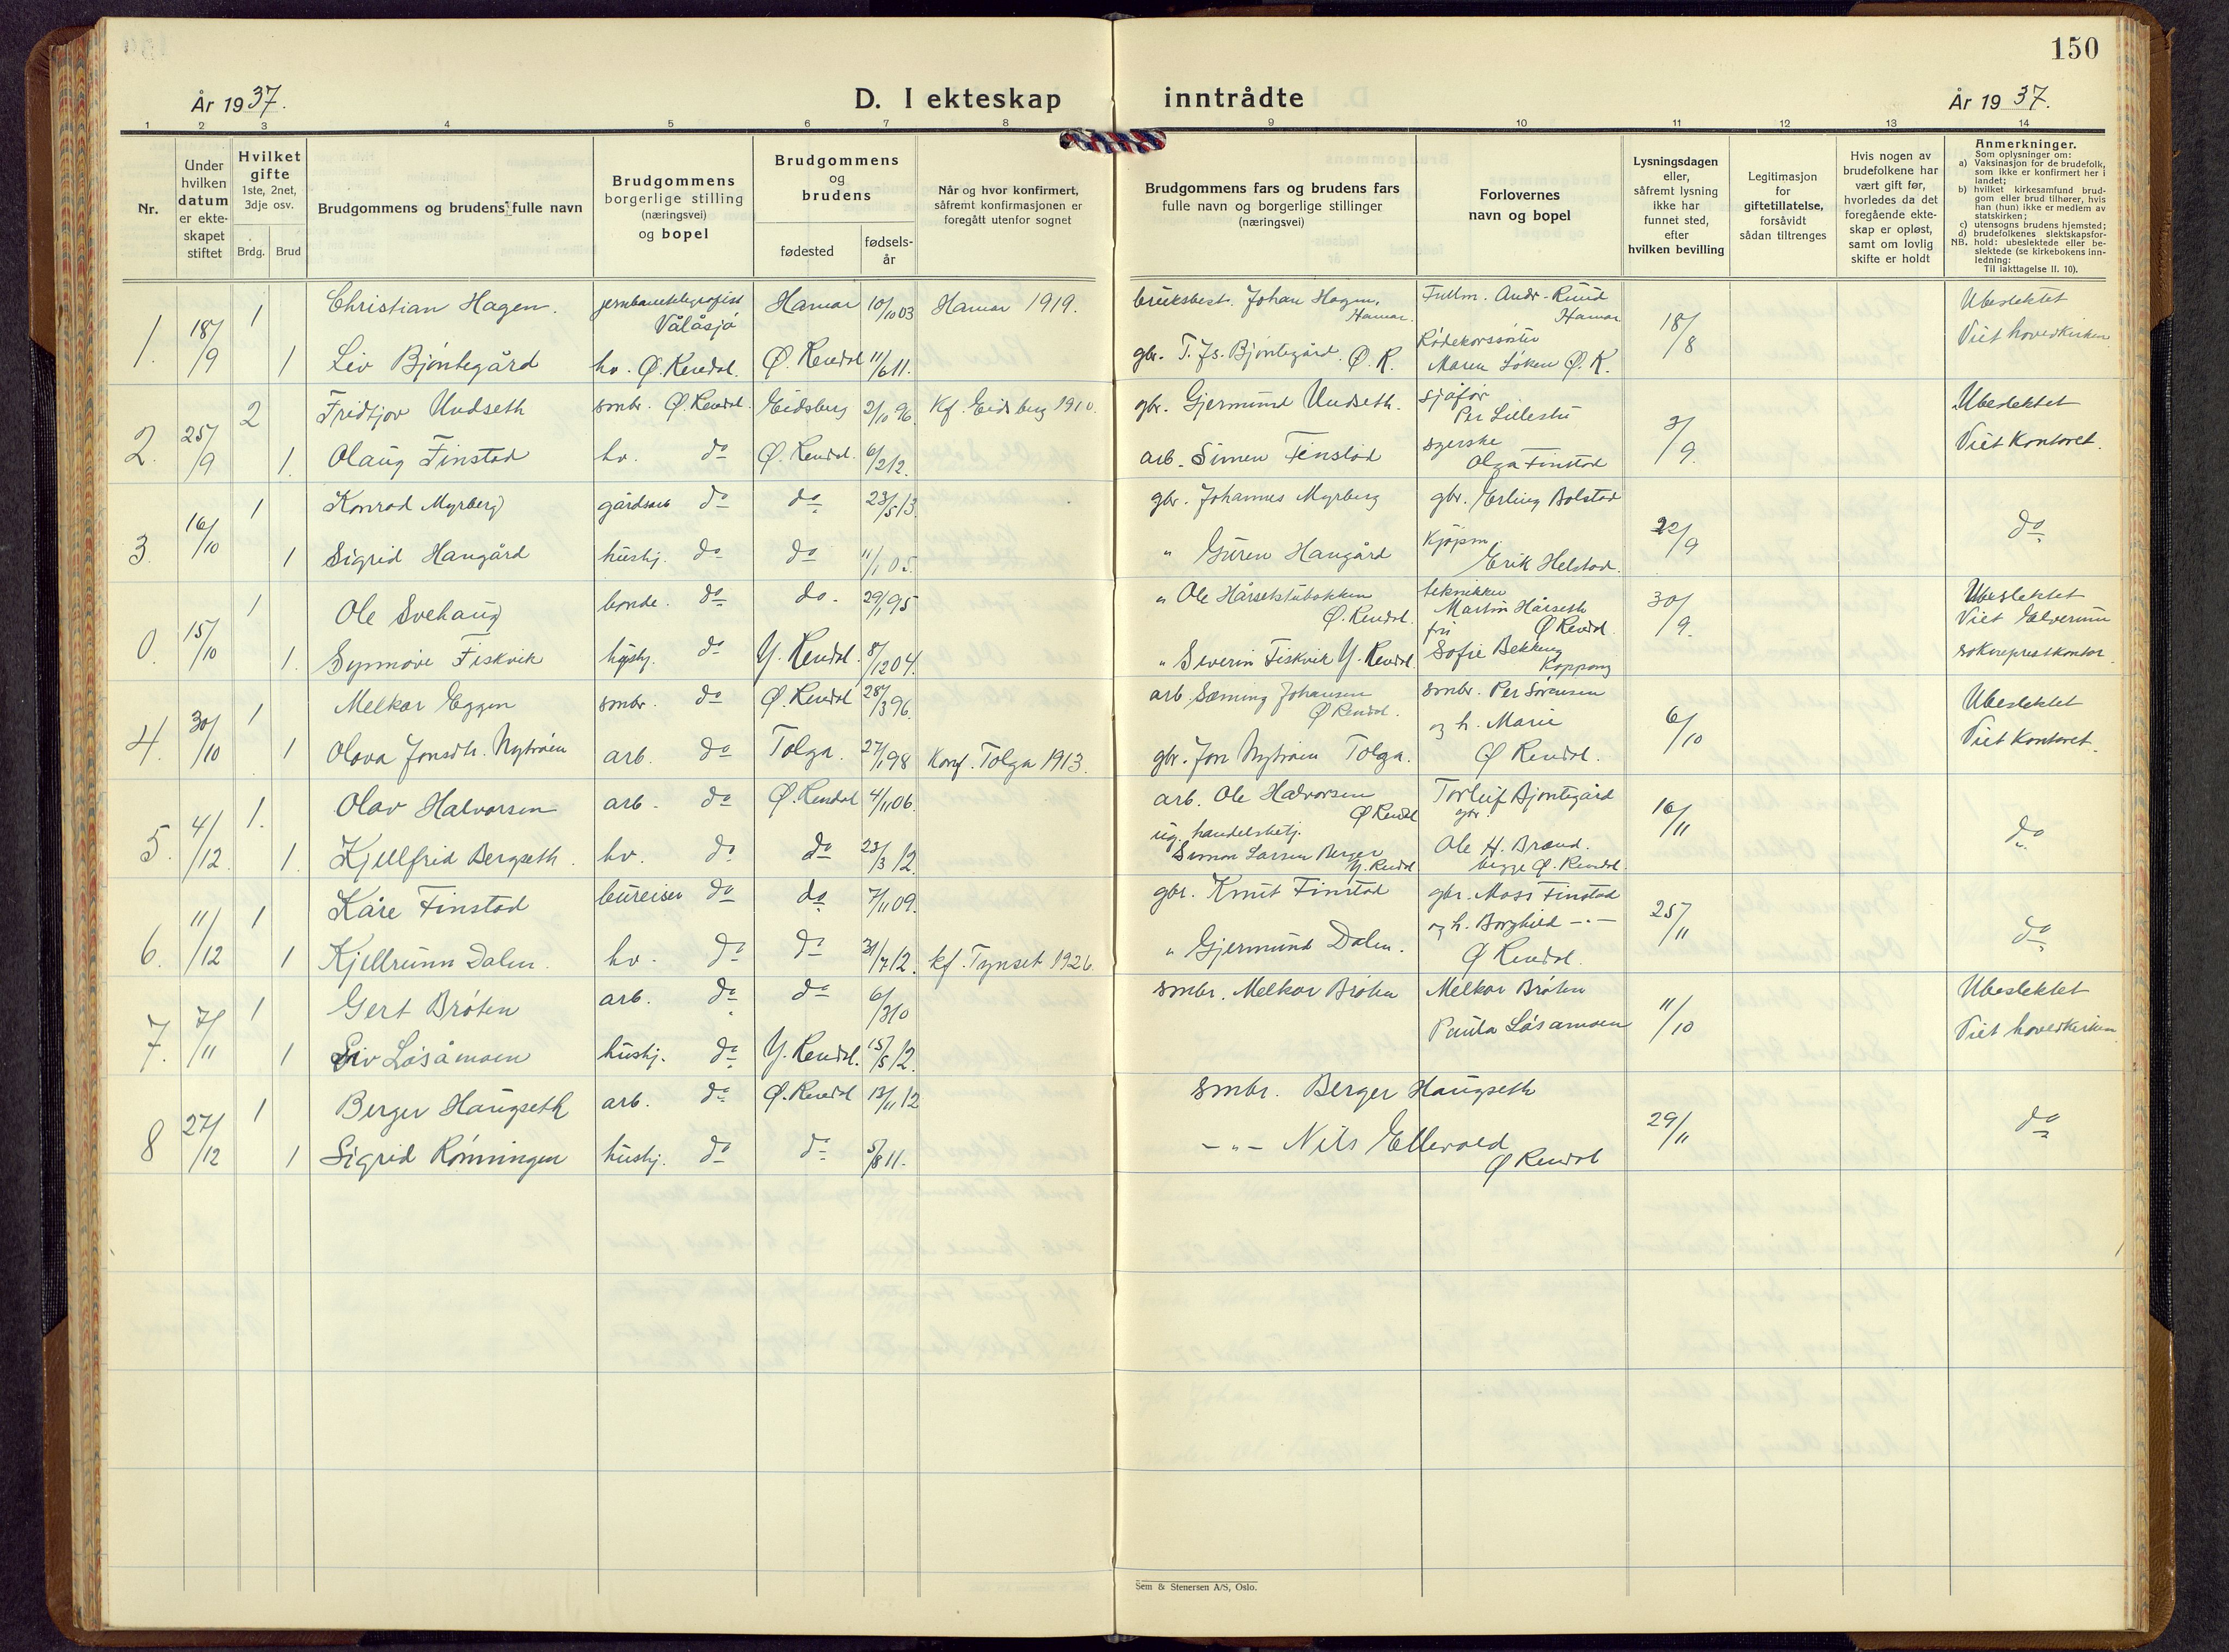 150
År 1937.
D. I ekteskap inntrådte
År 1937.
1 2 3 4 5 6 7 8 9 10 11 12 13 14
Nr.
Under hvilken datum er ekteskapet stiftet
Hvilket gifte
1ste, 2net, 3dje osv.
Brdg. Brud
Brudgommens og brudens fulle navn
Brudgommens borgerlige stilling (næringsvei) og bopel
Brudgommens og brudens
fødested
fødselsår
Når og hvor konfirmert, såfremt konfirmasjonen er foregått utenfor sognet
Brudgommens fars og brudens fars fulle navn og borgerlige stillinger (næringsvei)
Forlovernes navn og bopel
Lysningsdagen eller, såfremt lysning ikke har funnet sted, efter hvilken bevilling
Legitimasjon for giftetillatelse, forsåvidt sådan tiltrenges
Hvis nogen av brudefolkene har vært gift før, hvorledes da det foregående ekteskap er opløst, samt om lovlig skifte er holdt
Anmerkninger.
Som oplysninger om:
a) Vaksinasjon for de brudefolk, som ikke er konfirmert her i landet;
b) hvilket kirkesamfund brudgom eller brud tilhører, hvis han (hun) ikke er medlem av statskirken;
c) utensogns brudens hjemsted;
d) brudefolkenes slektskapsforhold: ubeslektede eller beslektede (se kirkebokens innledning:
NB. Til iakttagelse II. 10).
1. 18/9 1 Christian Hagen. jernbanetelegrafist Vålåsjø Hamar 10/10 03 Hamar 1919. bruksbest. Johan Hagen, Hamar. Fullm. Andr. Ruud Hamar 18/8 Ubeslektet
1 Liv Bjøntegård hv. Ø. Rendal. Ø. Rendal 11/6 11. gbr. T. Js. Bjøntegård. Ø. R. Rødekorssøster Maren Løken Ø. R. Viet hovedkirken
2. 25/9 2 Fridtjov Undseth smbr. Ø. Rendal. Eidsberg 2/10 96. Kf. Eidsberg 1910. gbr. Gjermund Undseth. sjåfør Per Lillestu 3/9. Ubeslektet
1. Olaug Finstad hv. do Ø. Rendal. 6/2 12. arb. Simen Finstad syerske Olga Finstad Viet Kontoret.
3. 16/10 1 Konrad Myrberg gårdsarb do do 23/5 13. gbr. Johannes Myrberg gbr. Erling Bolstad 22/9 do
1 Sigrid Haugård hushj. do do 11/1 05. " Guren Haugård Kjøpm. Erik Helstad.
0. 15/10 1 Ole Svehaug bonde. do do. 29/1 95 " Ole Hårsetstubakken Ø. Rendal. tekniker Martin Hårseth Ø Rendal. 30/9. Ubeslektet
1. Synnøve Fiskvik hushj. do Y. Rendal. 8/12 04. " Severin Fiskvik Y. Rendal. fru Sofie Bekkeng Koppang Viet Elverum sokneprestkontor.
4. 30/10 1 Melkor Eggen smbr. do Ø. Rendal 28/3 96. arb. Sæming Johansen Ø Rendal. smbr. Per Sørensen 6/10 Ubeslektet
1 Olava Jonsdtr. Nytrøen arb. do Tolga. 27/1 98 Konf. Tolga 1913. gbr. Jon Nytrøen Tolga. og h. Marie Ø Rendal. Viet Kontoret.
5. 4/12 1. Olav Halvorsen arb. do Ø. Rendal 4/11 06. arb. Ole Halvorsen Ø Rendal Torleif Bjøntegård gbr. 16/11 do
1. Kjellfrid Bergseth. hv. do do 23/3 12. ug. handelsbetj. Simon Larsen Berger Y. Rendal Ole H. Brænd. begge Ø. Rendal.
6. 11/12 1 Kåre Finstad bureiser do do 7/11 09. gbr. Knut Finstad gbr. Mass Finstad 25/11 do
1 Kjellrunn Dalen. hv. do do 31/7 12. kf. Tynset 1926. " Gjermund Dalen. og h. Borghild -"- Ø Rendal.
7. 7/11 1 Gert Bråten arb. do do 6/3 10 smbr. Melkor Bråten Melkor Bråten 11/10 Ubeslektet
1 Liv Løsåmoen hushj. do Y. Rendal. 15/5 12. Paula Løsåmoen Viet hovedkirken
8 27/12 1 Berger Haugseth arb. do Ø. Rendal 13/11 12 smbr. Berger Haugseth 29/11 do
1 Sigrid Rønningen hushj. do do 5/8 11. -"- Nils Ellevold Ø Rendal
Sem & Stenersen A/S, Oslo.